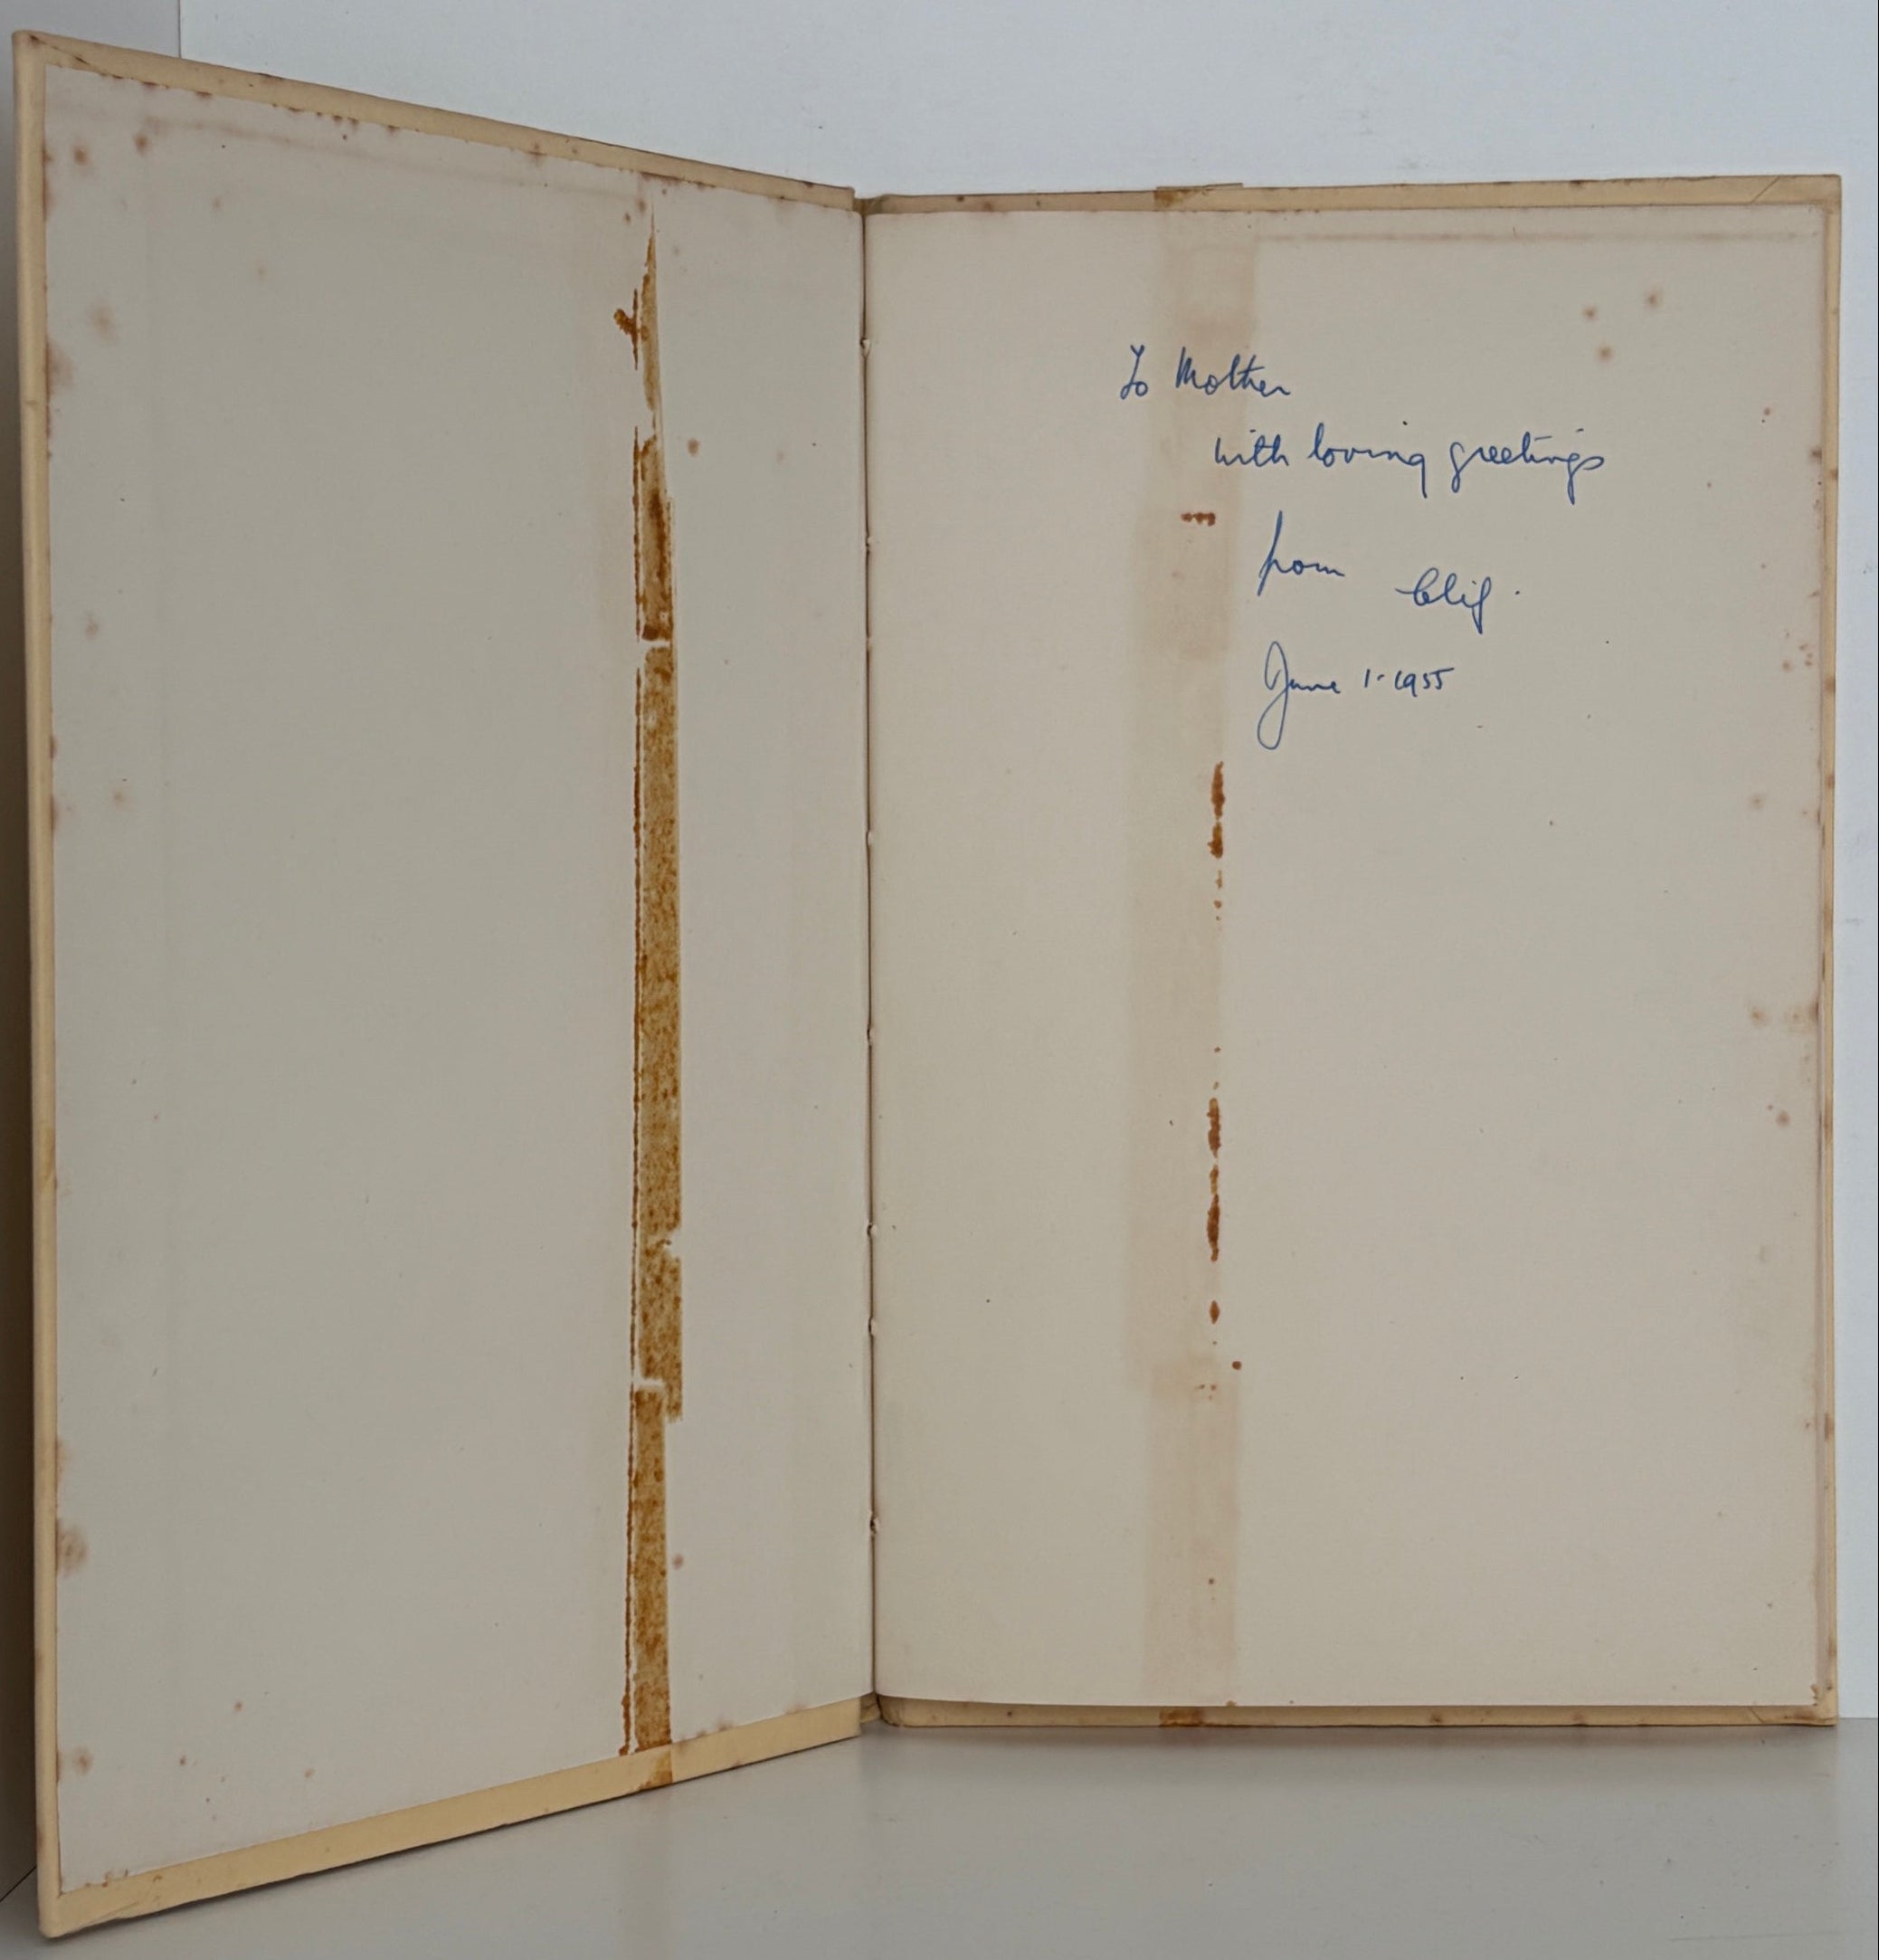 To Mother
with loving greetings
from Clif.
June 1-1955